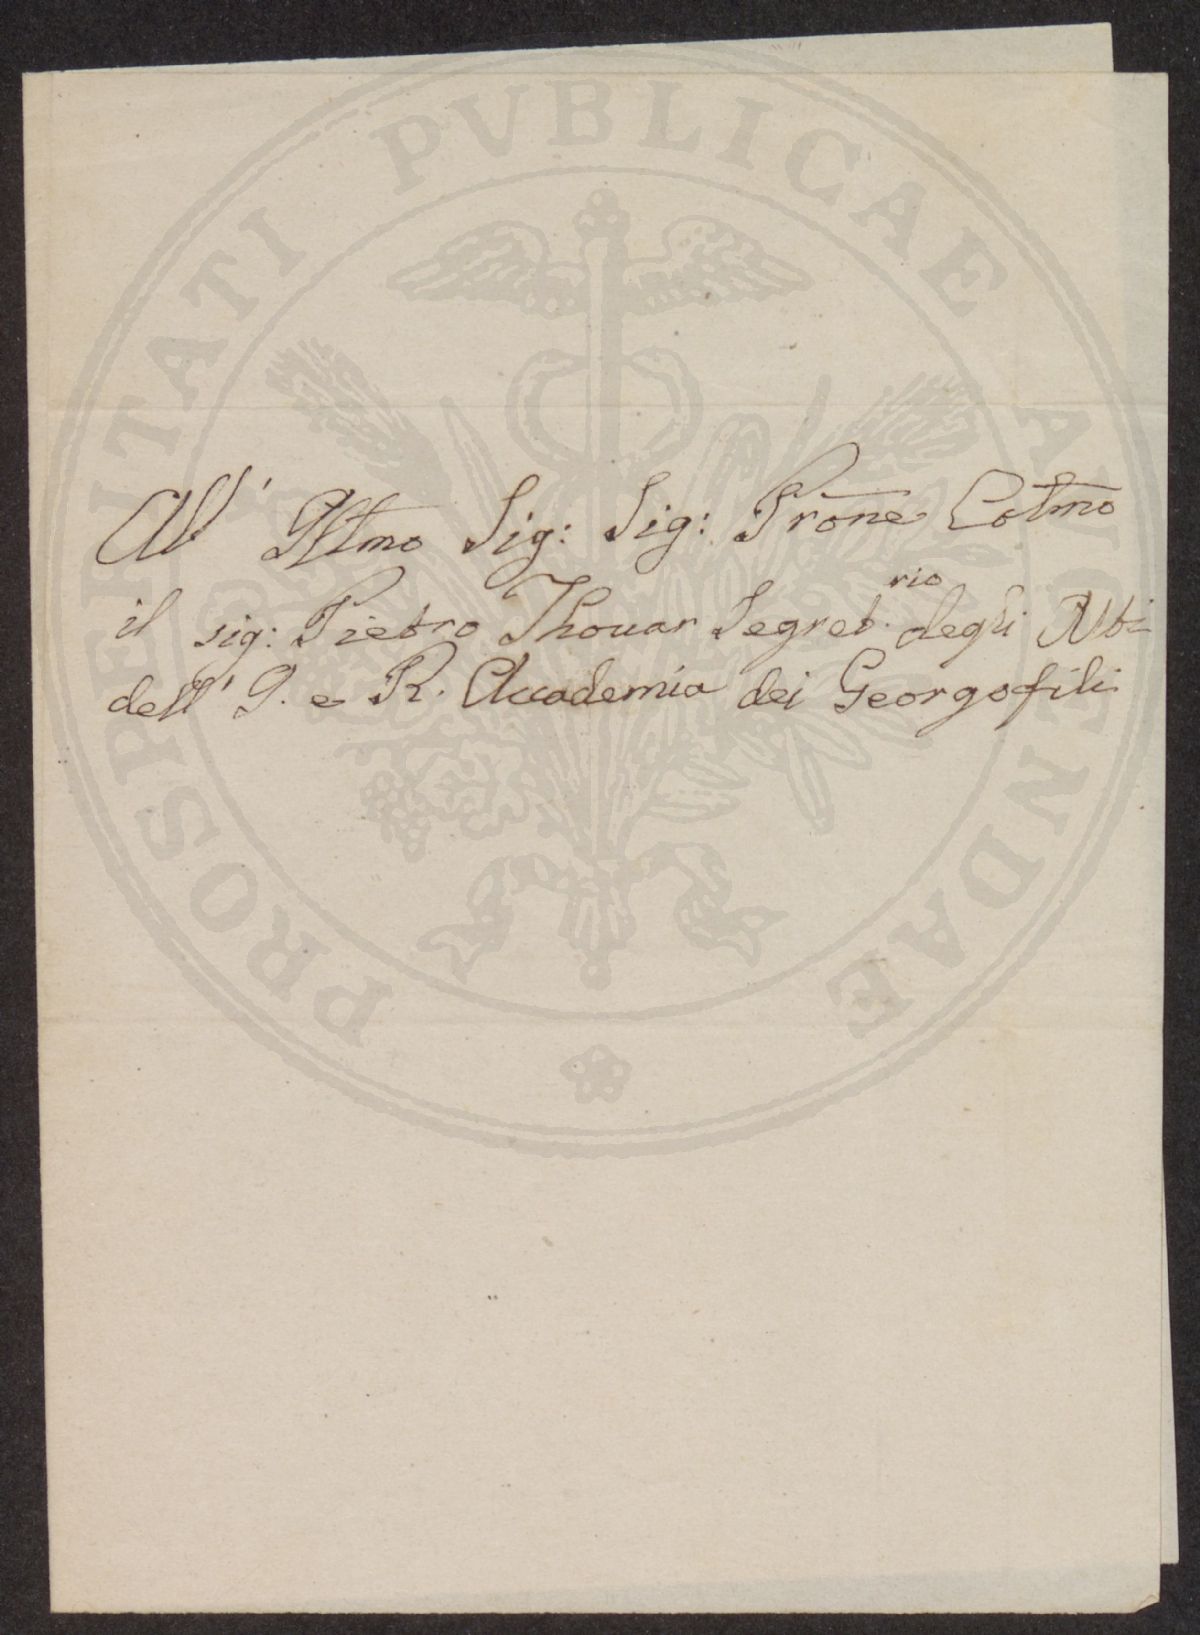 PROSPERITATI PVBLICAE AVGENDAE
All' Illmo Sig: Sig: Prone Colmo
il sig: Pietro Thouar Segret.rio degli Atti
dell' I. e R. Accademia dei Georgofili